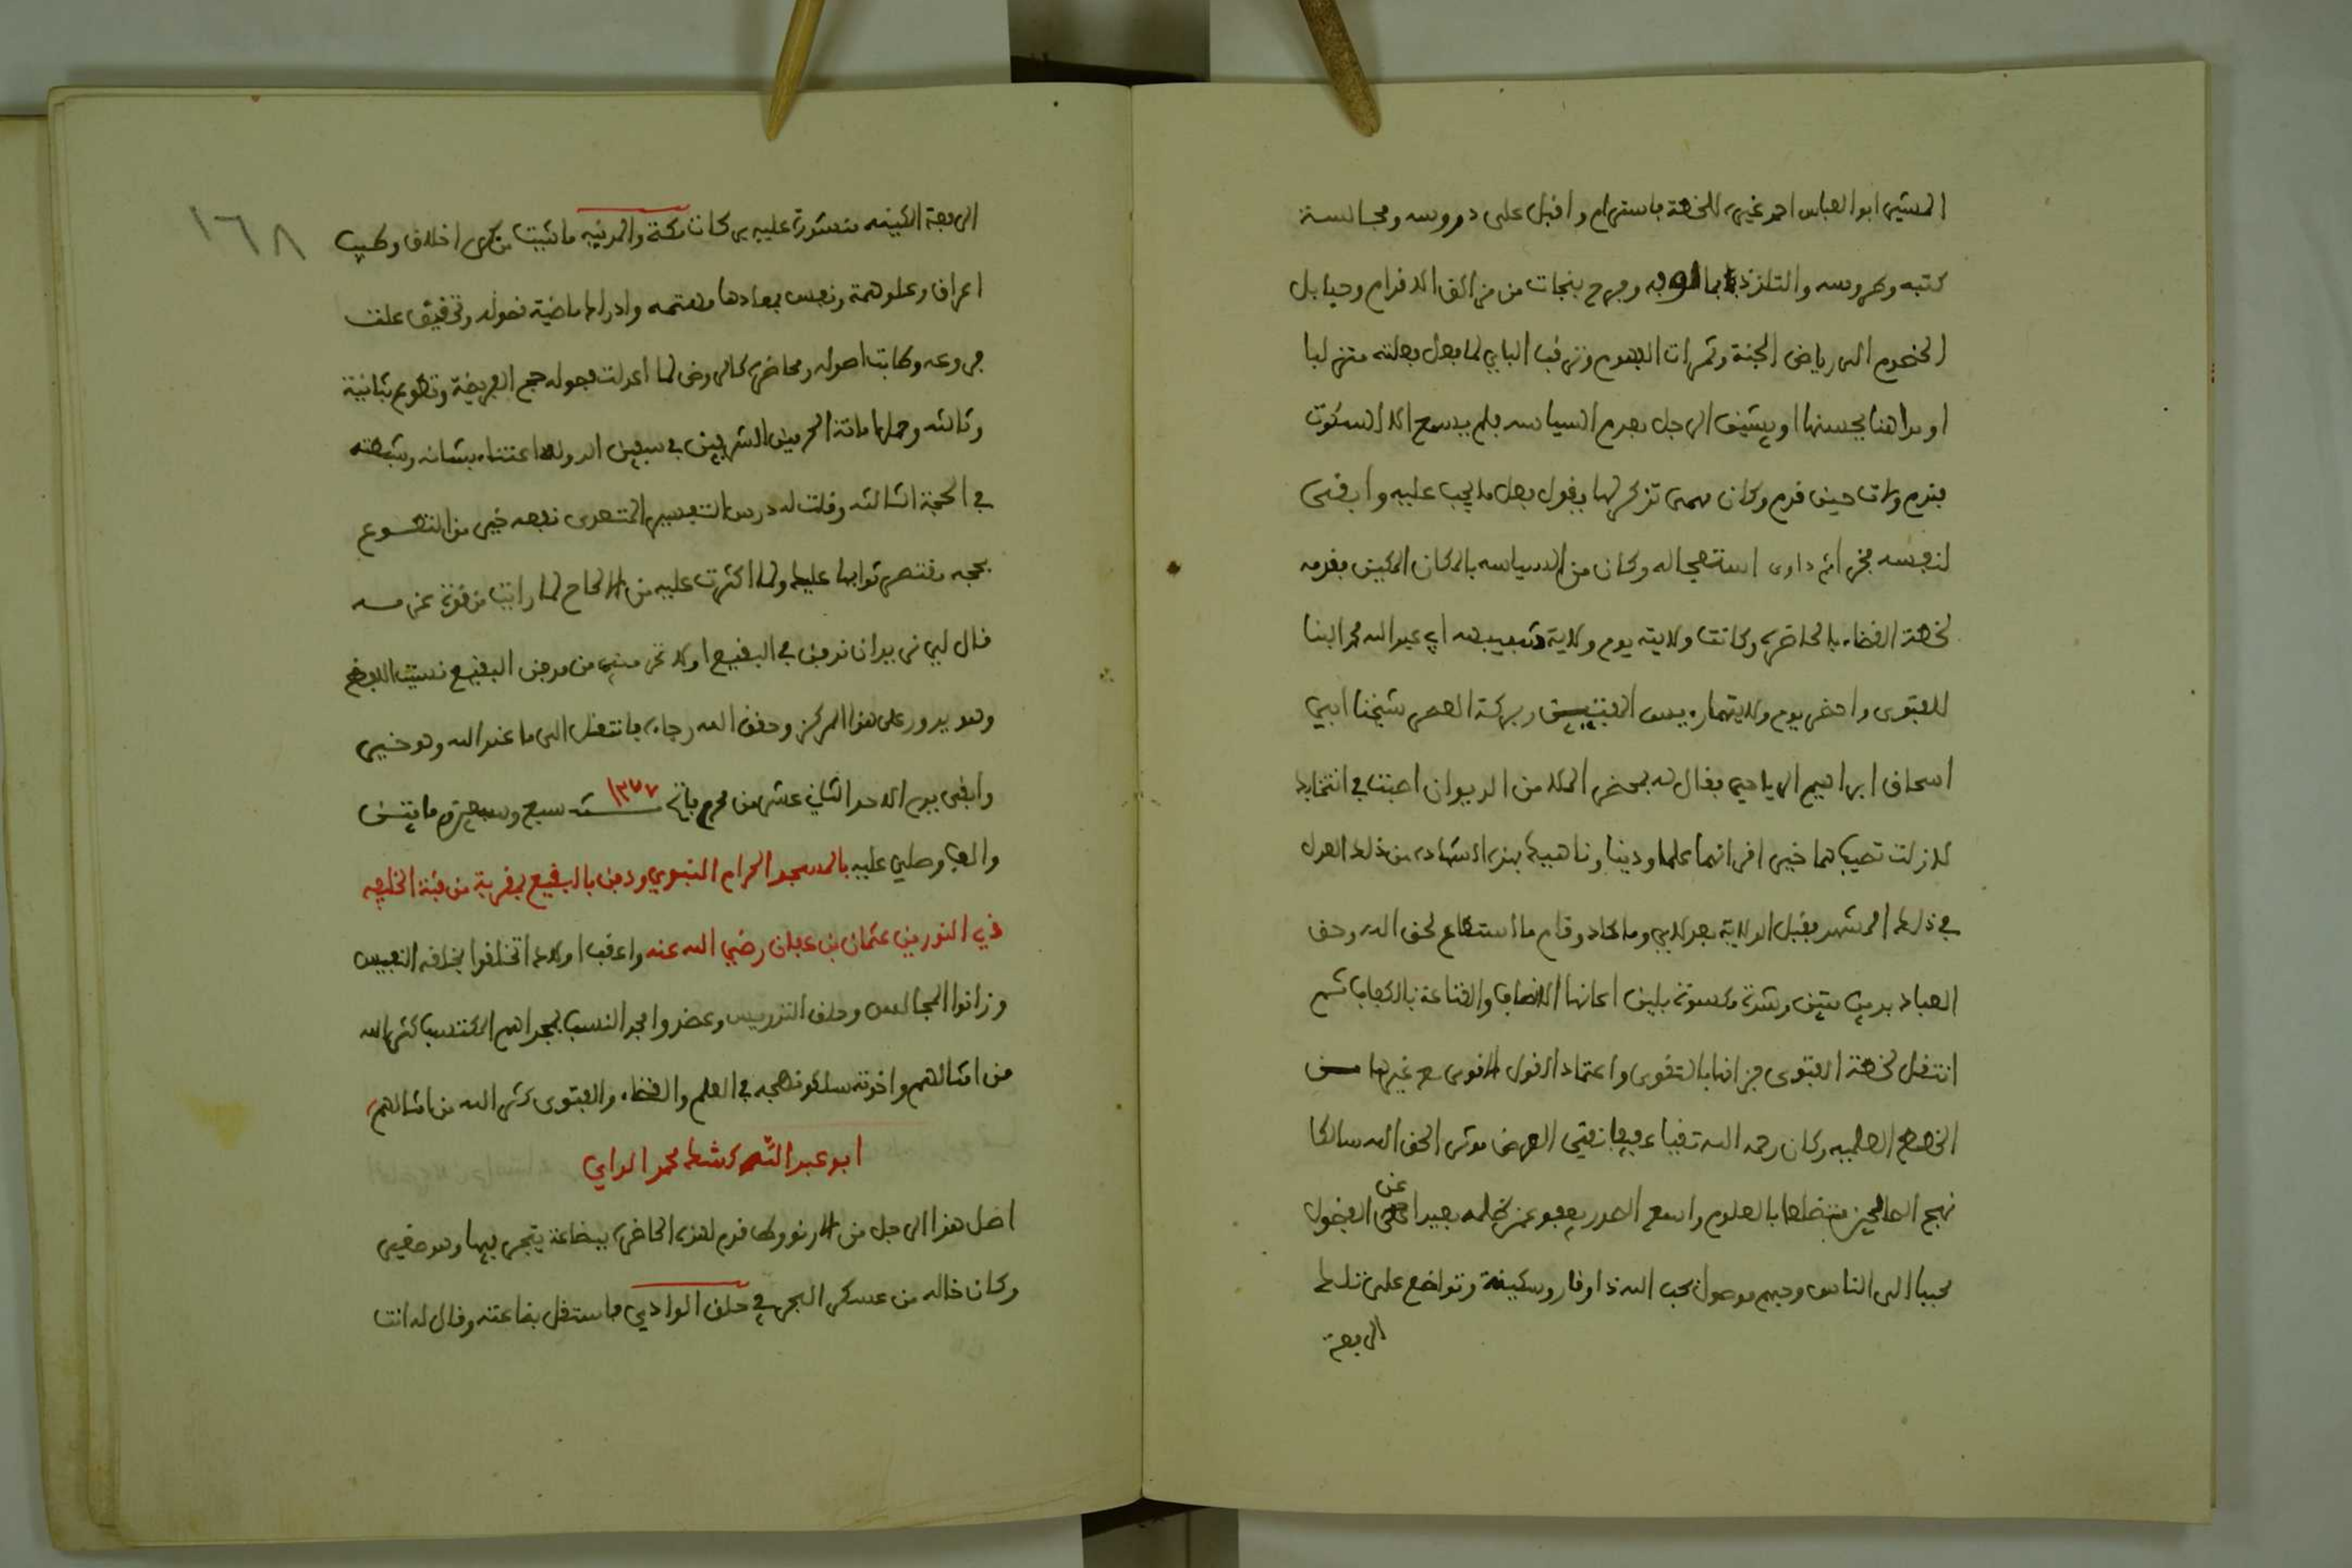 المشير ابو العباس احمد غيره للخطة باستهرام واقبل على دروسه ومجالسة
كتبه وطروسه والتلذذ بما الوبه وجرح بنجات من مزالق الاقدام وحبايل
الخصوم الى رياض الجنة وثمرات العلوم وترقب الباي لما فعل فعلته متنزلها
او مداهنا يحسنها او يشين الرجل بعدم السياسه فلم يسمع الا السكوت
فندم ولات حين ندم وكان مهمى تذكرها يقول فعل ما يجب عليه وابقى
لنفسه فخرا ثم داوى استعجاله وكان من السياسه بالمكان المكين فقدمه
لخطة القضاء بالحاضرة وكانت ولايته يوم ولاية شقيقه ابي عبد الله محمد البنا
للفتوى واحضر يوم ولايتهما رييس المفتيين وبركة العصر شيخنا ابي
اسحاق ابراهيم الرياحي فقال له بمحضر الملا من الديوان اصبت في انتخابك
لازلت تصيب هما خير اقرانهما علما ودينا وناهيك بهذه الشهادة من ذلك العدل
في ذلك المشهد فقبل الولاية بعد لاي وما كاد وقام ما استطاع لحق الله وحق
العباد بدين متين وشدة مكسوة بلين اعانها الانصاف والقناعة بالكفاف ثم
انتقل لخطة الفتوى فزانها بالتقوى واعتماد القول القوي مع غيرها من
الخطط العلميه وكان رحمه الله تقيا عفيفا نقي العرض موثر الحق الله سالكا
نهج الصالحين متضلعا بالعلوم واسع الصدر يعفو عمن ظلمه بعيدا عن الفضول
محببا الى الناس وحبهم موصول بحب الله ذا وقار وسكينة وتواضع على تلك
الربعة
١٦٨
الربعة الكينه منشورة عليه بركات مكة والمدينه ما شيت من كرم اخلاق وطيب
اعراق وعلو همة ونفس بمعادها مهتمه وادراك ماضية نصوله وتحقيق علت
فروعه وطابت اصوله ومحاضرة كالروض لما اعدلت فصوله حج الفريضة وتطوع بثانية
وثالثه وحمل امانة الحرمين الشريفين في سفين الدولة اعتناء بشانه وشيعته
في الحجة الثالثه وقلت له درس التفسير المتعدى نفعه خير من التطوع
بحجه مقتصر ثوابها عليك ولما اكثرت عليه من الالحاح لما رايت من قوة عزمه
قال لي نريد ان ندفن في البقيع اولا تحرمني من مدفن البقيع نسيت اللفظ
وهو يدور على هذا المركز وحقق الله رجاءه فانتقل الى ما عند الله وهو خير
وابقى يوم الاحد الثاني عشر من محرم فاتح ١٢٧٧ سنه سبع وسبعين ومايتين
والف وصلي عليه بالمسجد الحرام النبوي ودفن بالبقيع بمقربة من قبة الخليفه
ذي النورين عثمان بن عفان رضي الله عنه واعقب اولادا تخلفوا بخلقه النفيس
وزانوا المجالس وحلق التدريس وعضدوا مجد النسب بمجدهم المكتسب كثر الله
من امثالهم واخوته سلكوا نهجه في العلم والقضاء والفتوى كثر الله من امثالهم
ابو عبد الله كشك محمد الداي
اصل هذا الرجل من الارنوود قدم لهذه الحاضرة ببضاعة يتجر فيها وهو صغير
وكان خاله من عسكر البحر في حلق الوادي فاستقل بضاعته وقال له انت